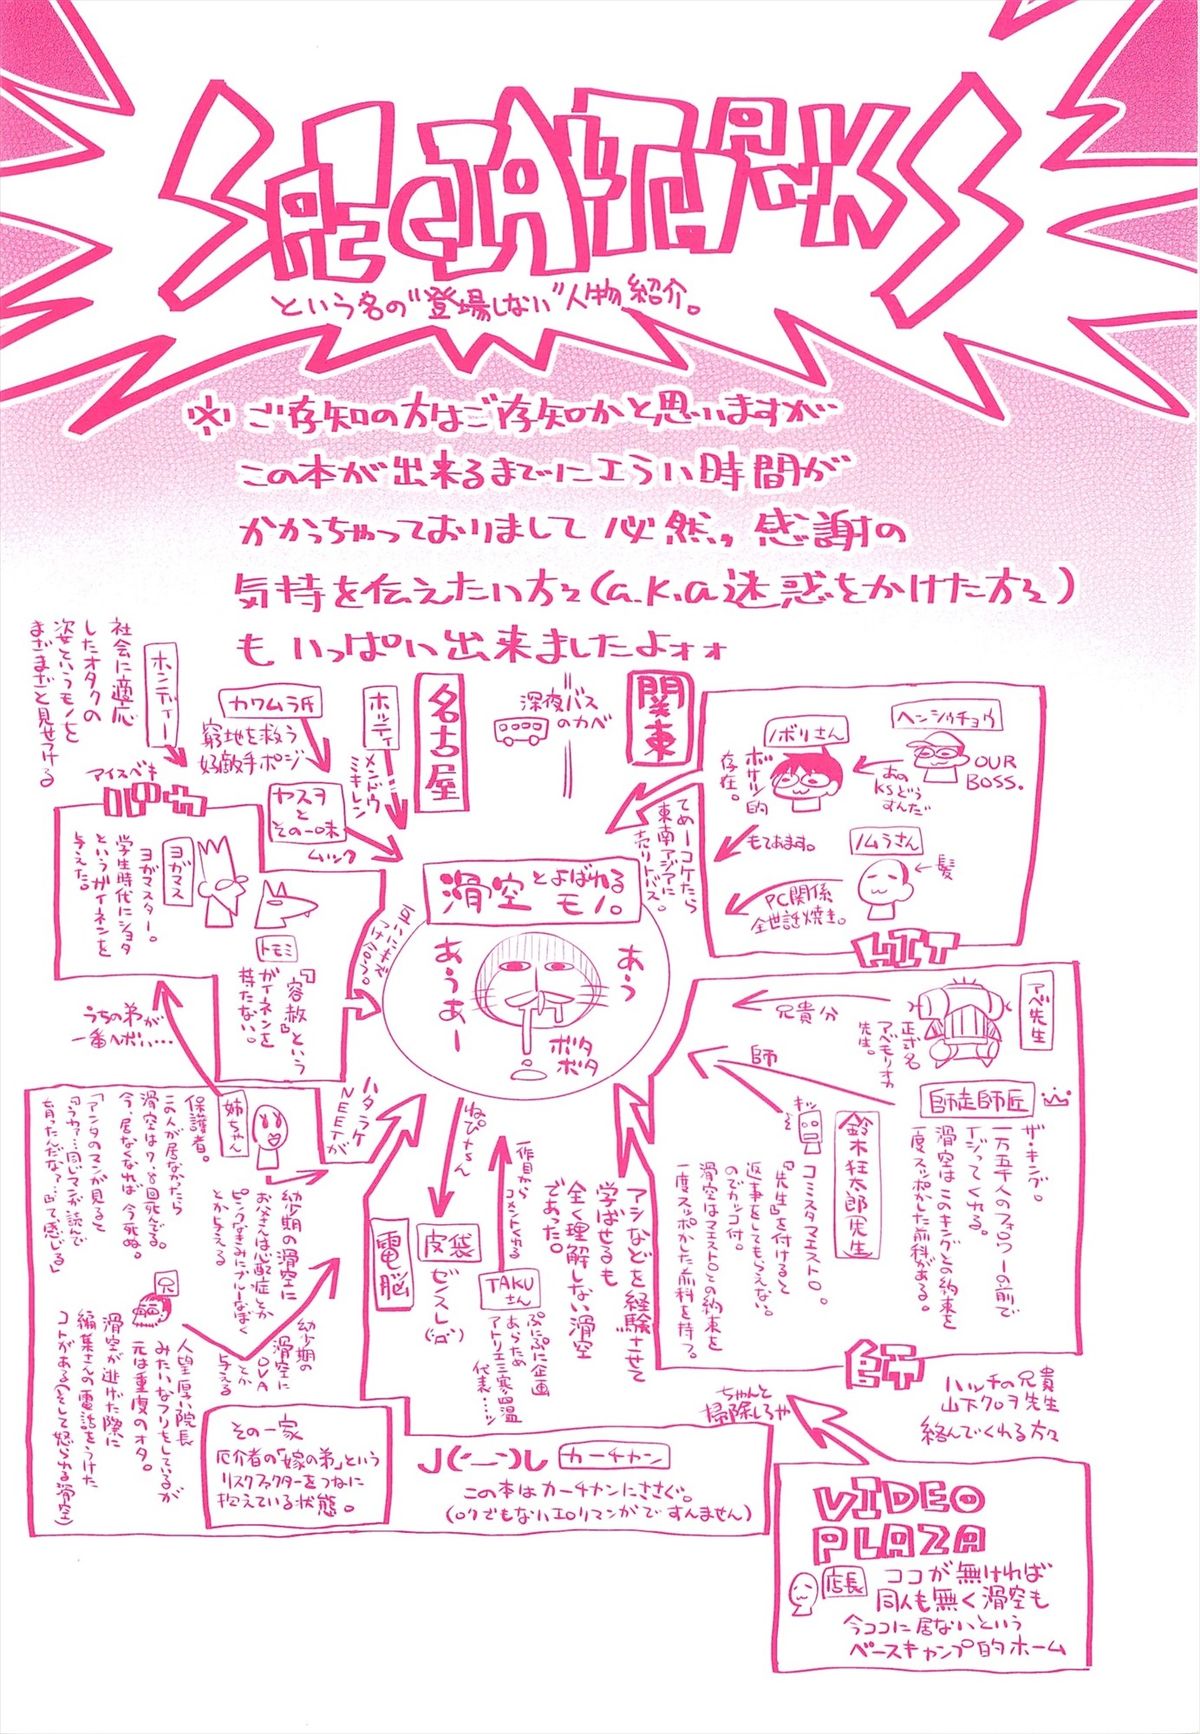 SPECIAL THANKS
という名の"登場しない"人物紹介。
※ご存知の方はご存知かと思いますが
この本が出来るまでにエラい時間が
かかっちゃっておりまして必然、感謝の
気持を伝えたい方々(a.k.a迷惑をかけた方々)
もいっぱい出来ましたよォォ
関東
深夜バス
のカベ
名古屋
ヘンシュウチョウ
OUR
BOSS.
あの
KSどう
すんだ
ノボリさん
ボサツ的
存在。
もてあます。
ノムラさん
髪
PC関係
全世話焼き。
HIT
てめーコケたら
東南アジアに
売りトバス。
ホッティ
メンドウ
ミキレン
カワムラ氏
窮地を救う
好敵手ポジ
ヤスヲ
と
その一味
ムック
ホンディー
社会に適応
したオタクの
姿というモノを
まざまざと見せつける
アイスベキ
ヨガマス
ヨガマスター。
学生時代にショタ
というガイネンを
与えた。
トモミ
『容赦』という
ガイネンを
持たない。
うちの弟が
一番ヘボい…
滑空とよばれる
モノ。
あう
あうあー
ボタ
ボタ
アベ先生
正式名
アベモリオカ
先生。
兄貴分
師
師走師匠
ザ・キング。
一万五千人のフォロワーの前で
イジってくれる。
滑空はこのキングとの約束を
一度スッポかした前科がある。
鈴木狂太郎先生
キッ
コミスタマエストロ。
『先生』を付けると
返事をしてもらえない。
のでカッコ付。
滑空はマエストロとの約束を
一度スッポかした前科を持つ。
師
ハッチの兄貴
山下クロヲ先生
絡んでくれる方々
アシなどを経験させて
学ばせるも
全く理解しない滑空
であった。
一作目から
コメントくれる
TAKU
さん
ぷにぷに企画
あらため
アトリエ三寒四温
代表…ッ
皮袋
ゼンスレ(゚д゚)
電脳
ハタラケ
NEETが
姉ちゃん
保護者。
この人が居なかったら
滑空は7、8回死んでる。
今、居なくなれば今死ぬ。
「アンタのマンガ見ると
『うわァ…同じマンガ読んで
育ったんだなァ…』って感じる」
幼少期の滑空に
お父さんは心配症とか
ピンクなきみにブルーなぼく
とか与える
兄
人望厚い院長
みたいなフリをしているが
元は重度のオタ。
滑空が逃げた際に
編集さんの電話をうけた
コトがある(そして怒られる滑空)
幼少期の
滑空に
OVA
とか
与える
その一家
厄介者の「嫁の弟」という
リスクファクターをつねに
抱えている状態。
J(‘ー`)し カーチャン
この本はカーチャンにささぐ。
(ロクでもないエロリマンガですんません)
ちゃんと
掃除しろや
VIDEO
PLAZA
店長
ココが無ければ
同人も無く滑空も
今ココに居ないという
ベースキャンプ的ホーム